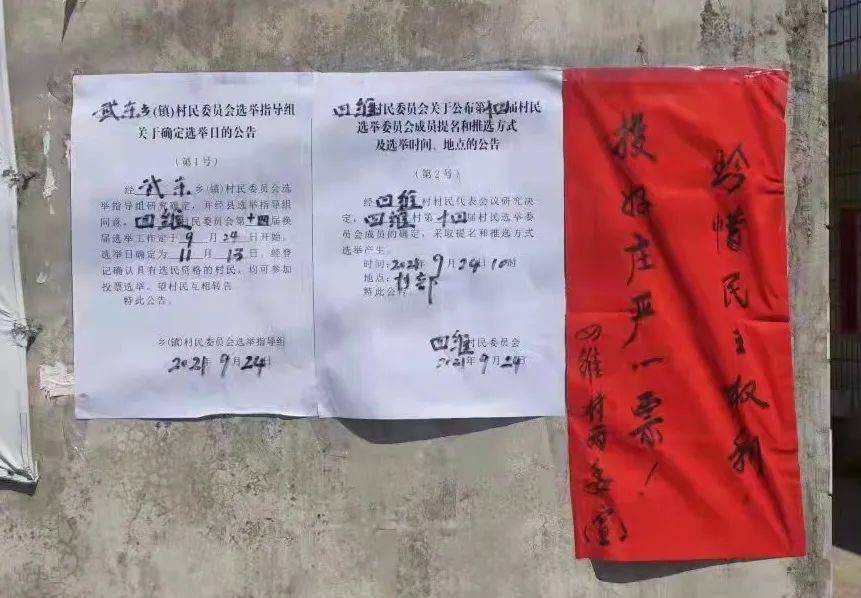 武东乡(镇)村民委员会选举指导组
关于确定选举日的公告
(第1号)
经武东乡(镇)村民委员会选
举指导组研究确定，并经县选举指导组
同意，四维村民委员会第十四届换
届选举工作定于9月24日开始，
选举日确定为11月13日。经登
记确认具有选民资格的村民，均可参加
投票选举。望村民互相转告
特此公告。
乡(镇)村民委员会选举指导组
2021年9月24日
四维村民委员会关于公布第十四届村民
选举委员会成员提名和推选方式
及选举时间、地点的公告
(第2号)
经四维村村民代表会议研究决
定，四维村第十四届村民选举委
员会成员的确定，采取提名和推选方式
选举产生。
时间：2021年9月24日10时
地点：村部
特此公告
四维村民委员会
2021年9月24日
珍惜民主权利
投好庄严一票！
四维村两委(宣)